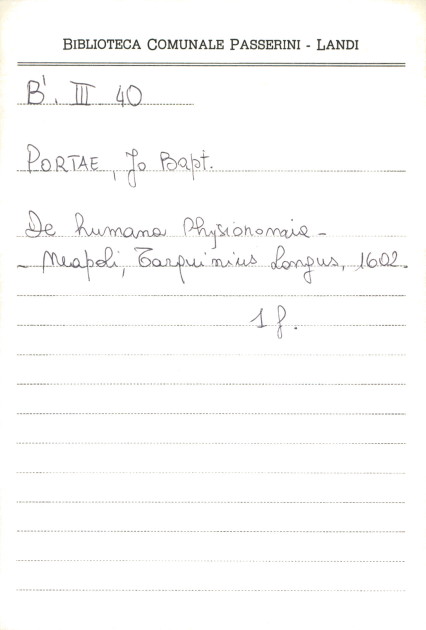 BIBLIOTECA COMUNALE PASSERINI - LANDI
B'. III 40
PORTAE, Jo Bapt.
De humana Physionomia -
- Neapoli, Tarquinius Longus, 1602.
1 f.